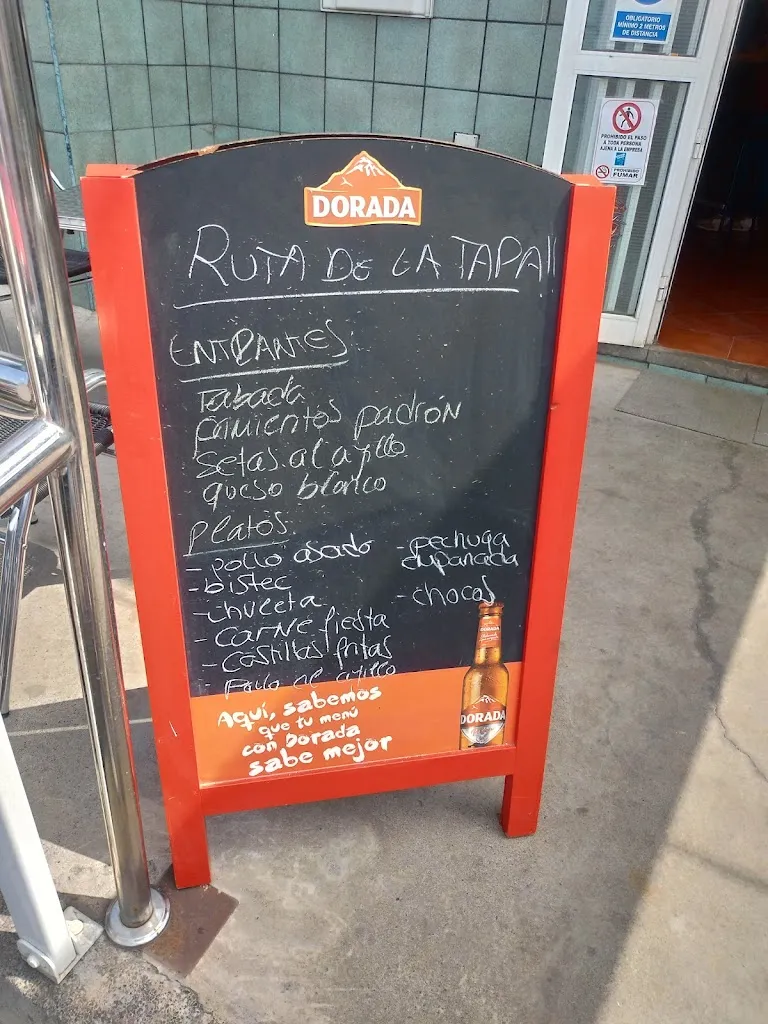 OBLIGATORIO
MÍNIMO 2 METROS
DE DISTANCIA
PROHIBIDO EL PASO
A TODA PERSONA
AJENA A LA EMPRESA
PROHIBIDO
FUMAR
DORADA
RUTA DE LA TAPA!!
ENTRANTES
Tabada
pimientos padrón
setas al ajillo
queso blanco
Platos
- pollo asado
- bistec
- chuleta
- carne fiesta
- costillas fritas
- pollo al ajillo
- pechuga
empanada
- chocos
Aquí, sabemos
que tu menú
con Dorada
sabe mejor
DORADA
DORADA